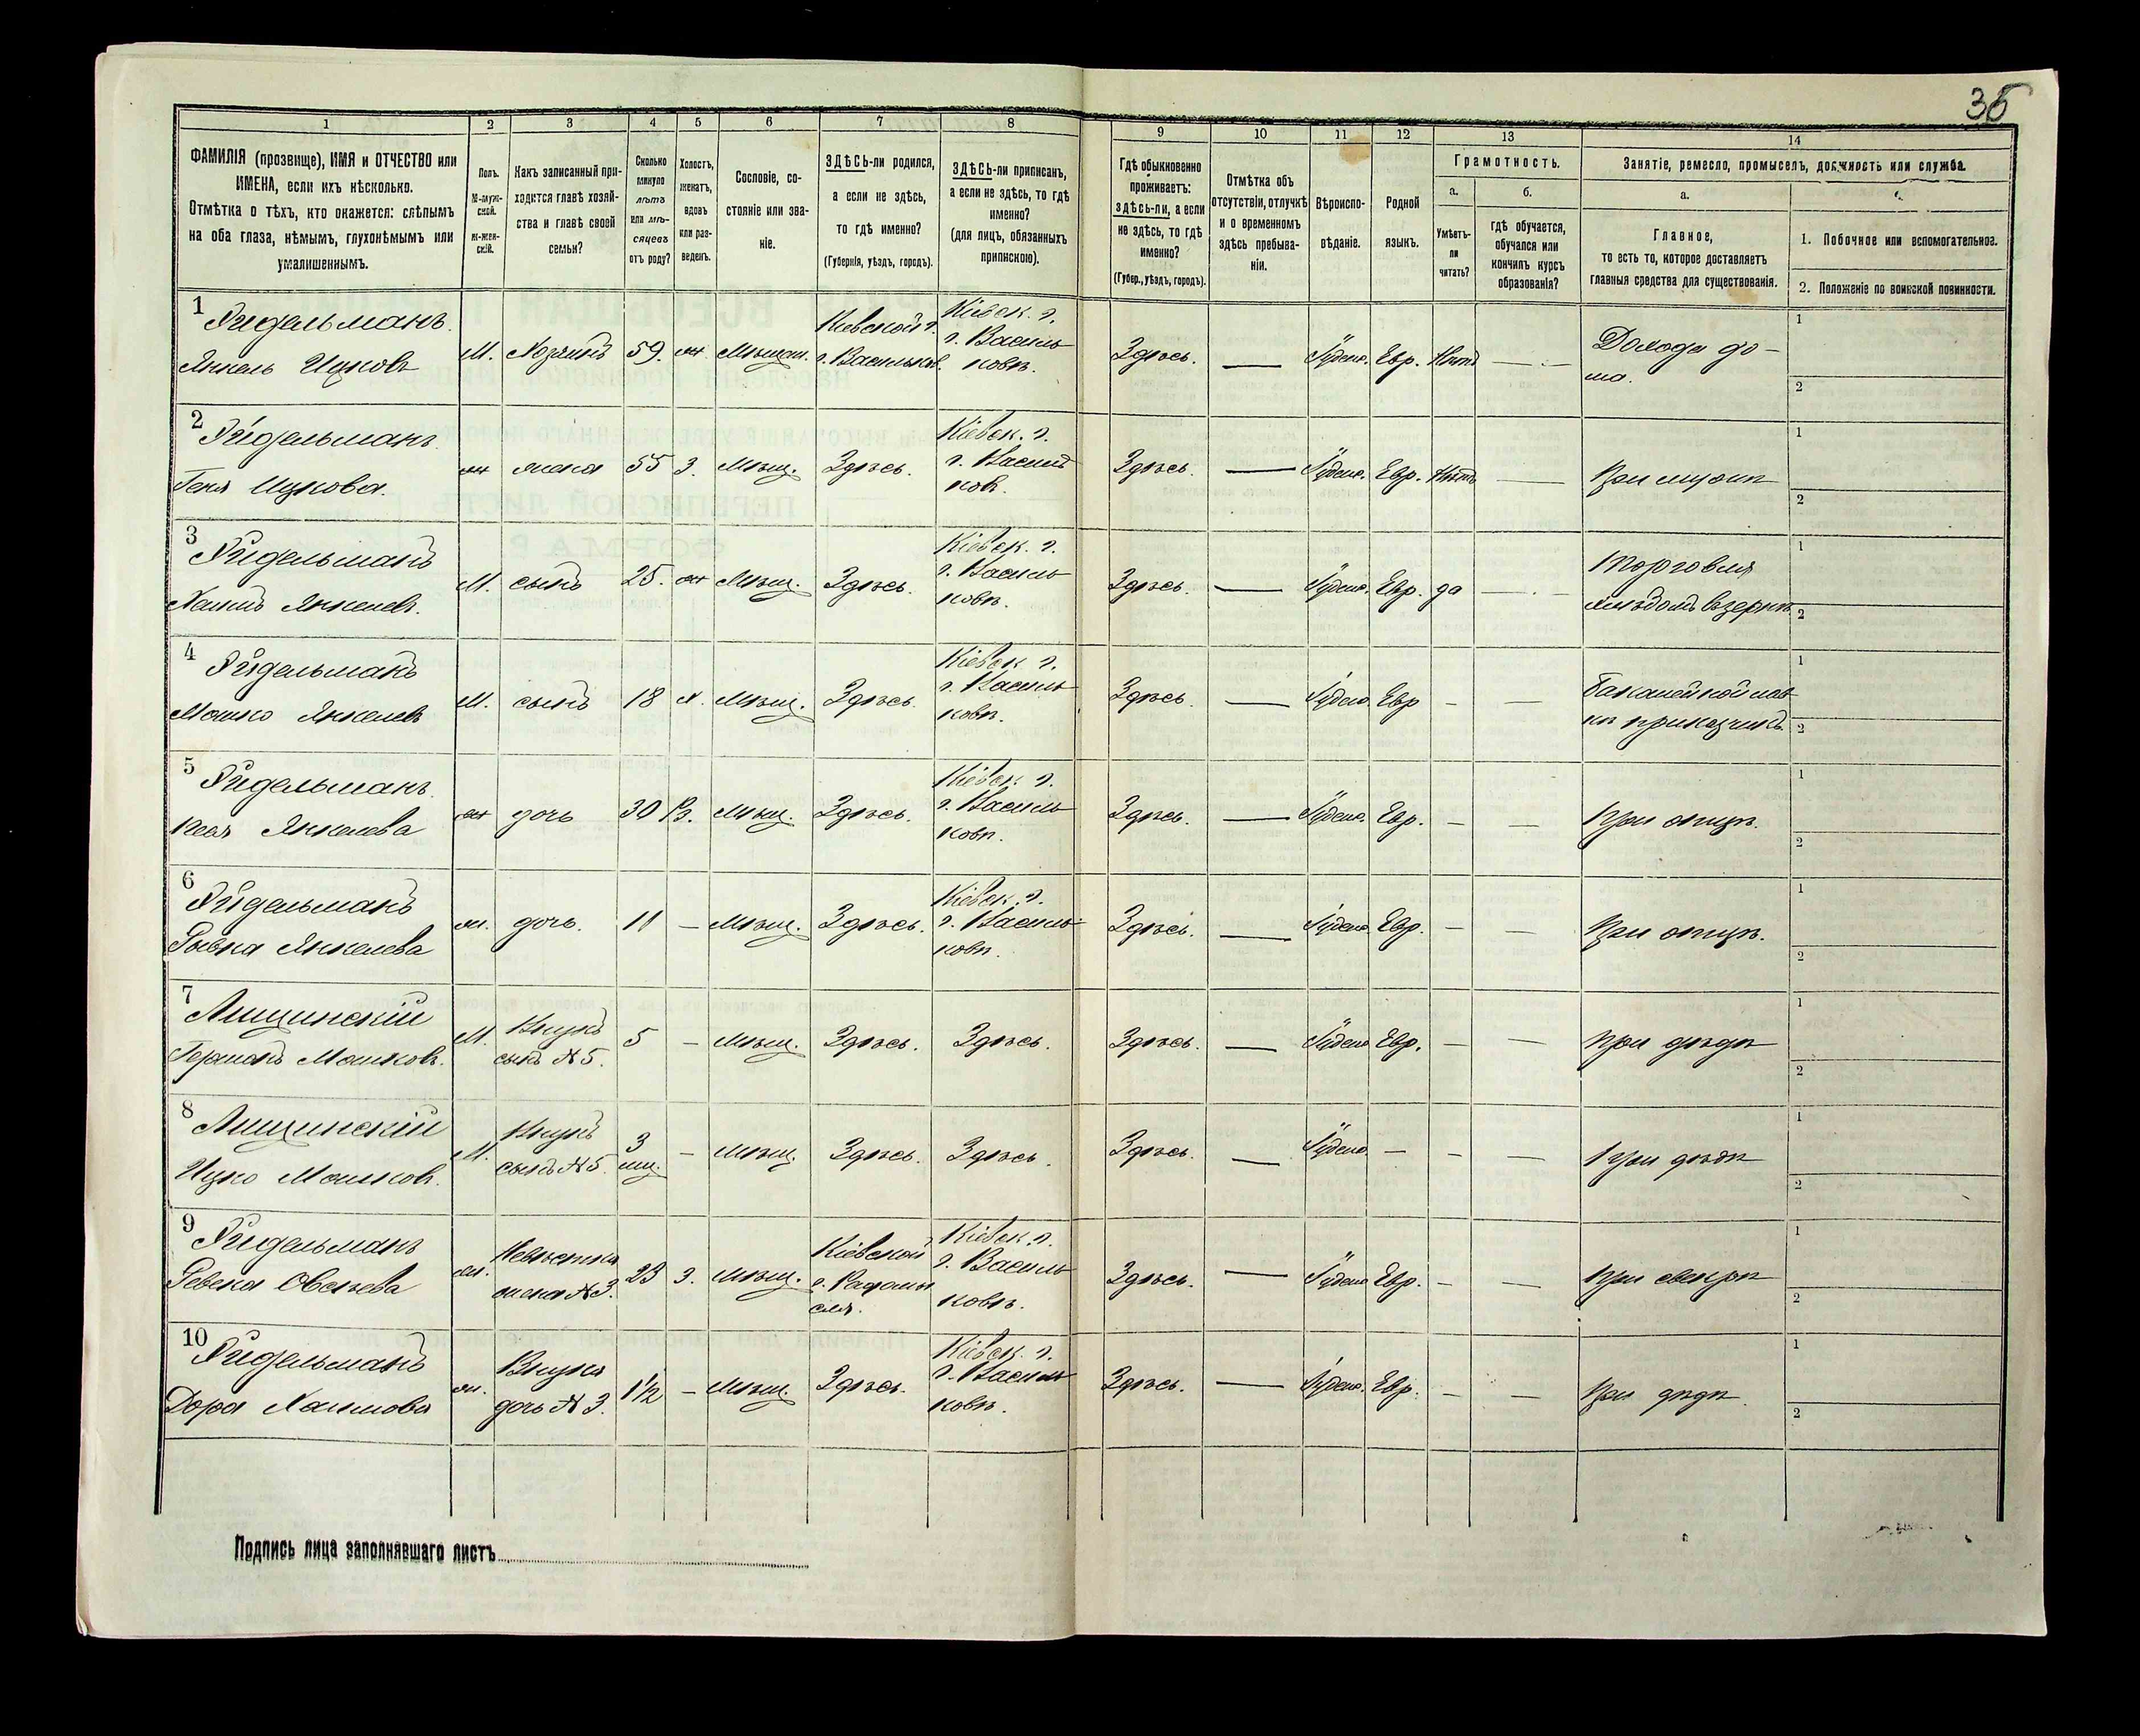 35
1 2 3 4 5 6 7 8 9 10 11 12 13 14
ФАМИЛІЯ (прозвище), ИМЯ и ОТЧЕСТВО или
ИМЕНА, если ихъ нѣсколько.
Отмѣтка о тѣхъ, кто окажется: слѣпымъ
на оба глаза, нѣмымъ, глухонѣмымъ или
умалишеннымъ.
Полъ.
М-муж-
ской.
Ж-жен-
скій.
Какъ записанный при-
ходится главѣ хозяй-
ства и главѣ своей
семьи?
Сколько
минуло
лѣтъ
или мѣ-
сяцевъ
отъ роду?
Холостъ,
женатъ,
вдовъ
или раз-
веденъ.
Сословіе, со-
стояніе или зва-
ніе.
ЗДѢСЬ-ли родился,
а если не здѣсь,
то гдѣ именно?
(Губернія, уѣздъ, городъ).
ЗДѢСЬ-ли приписанъ,
а если не здѣсь, то гдѣ
именно?
(для лицъ, обязанныхъ
припискою).
Гдѣ обыкновенно
проживаетъ:
здѣсь-ли, а если
не здѣсь, то гдѣ
именно?
(Губер., уѣздъ, городъ).
Отмѣтка объ
отсутствіи, отлучкѣ
и о временномъ
здѣсь пребыва-
ніи.
Вѣроиспо-
вѣданіе.
Родной
языкъ.
Грамотность.
а.
Умѣетъ-
ли
читать?
б.
гдѣ обучается,
обучался или
кончилъ курсъ
образованія?
Занятіе, ремесло, промыселъ, должность или служба.
а.
Главное,
то есть то, которое доставляетъ
главныя средства для существованія.
1. Побочное или вспомогательное.
2. Положеніе по воинской повинности.
1 Янкель Ицковъ
М. Хозяинъ 59. ж Мѣщан. Кіевской г. г. Васильков. Кіевск. г. г. Василь ковѣ. Здѣсь. — Іудейс. Евр. Нѣтъ — Дохода до-
ма. 1 2
2 Геня Ицкова.
ж жена 55 З. Мѣщ. Здѣсь. Кіевск. г. г. Васильков. Здѣсь. — Іудейс. Евр. Нѣтъ — При мужѣ 1 2
3 Хаимъ Янкелев.
М. сынъ 25. ж Мѣщ. Здѣсь. Кіевск. г. г. Василь ковѣ. Здѣсь. — Іудейс. Евр. да — Торговля
хлѣбомъ въ зернѣ 1 2
4 Мошко Янкелевъ
М. сынъ 18 Х. Мѣщ. Здѣсь. Кіевск г. г. Василь ковѣ. Здѣсь. — Іудейс. Евр — — Бакалейной лав
кѣ приказчикъ. 1 2
5 Янкелева
ж дочь 30 В. Мѣщ. Здѣсь. Кіевск. г. г. Василь ковѣ. Здѣсь. — Іудейс. Евр. — — При отцѣ. 1 2
6 Янкелева
ж. дочь. 11 — Мѣщ. Здѣсь. Кіевск. г. г. Василь ковѣ. Здѣсь. — Іудейс. Евр. — — При отцѣ. 1 2
7 Лищинскій
Германъ Мошков. М. Внукъ
сынъ №5. 5 — Мѣщ. Здѣсь. Здѣсь. Здѣсь. — Іудейс Евр. — — При дѣдѣ 1 2
8 Лищинскій
Ицко Мошков. М. Внукъ
сынъ №5. 3
мѣс. — Мѣщ. Здѣсь. Здѣсь. Здѣсь. — Іудейс — — — При дѣдѣ 1 2
9 Овсѣева
ж. Невѣстка
жена №3. 23 З. Мѣщ. Кіевской Кіевск. г. г. Василь ковѣ. Здѣсь. — Іудейс Евр. — — При свекрѣ 1 2
10 Дора Хаимова
ж. Внука
дочь №3. 1½ — Мѣщ. Здѣсь. Кіевск. г. г. Василь ковѣ. Здѣсь. — Іудейс. Евр. — — При дѣдѣ. 1 2
Подпись лица заполнявшаго листъ